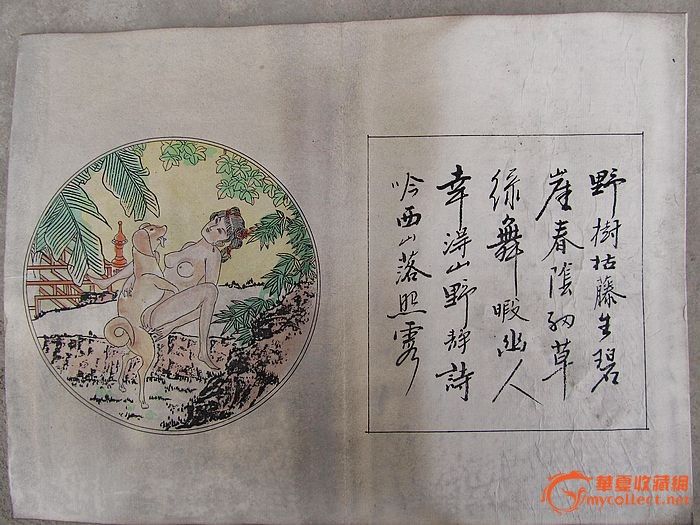 野樹枯藤生碧
崖春陰細草
綠舞暇幽人
幸淂山野靜詩
吟西山落照霧
華夏收藏網
mycollect.net